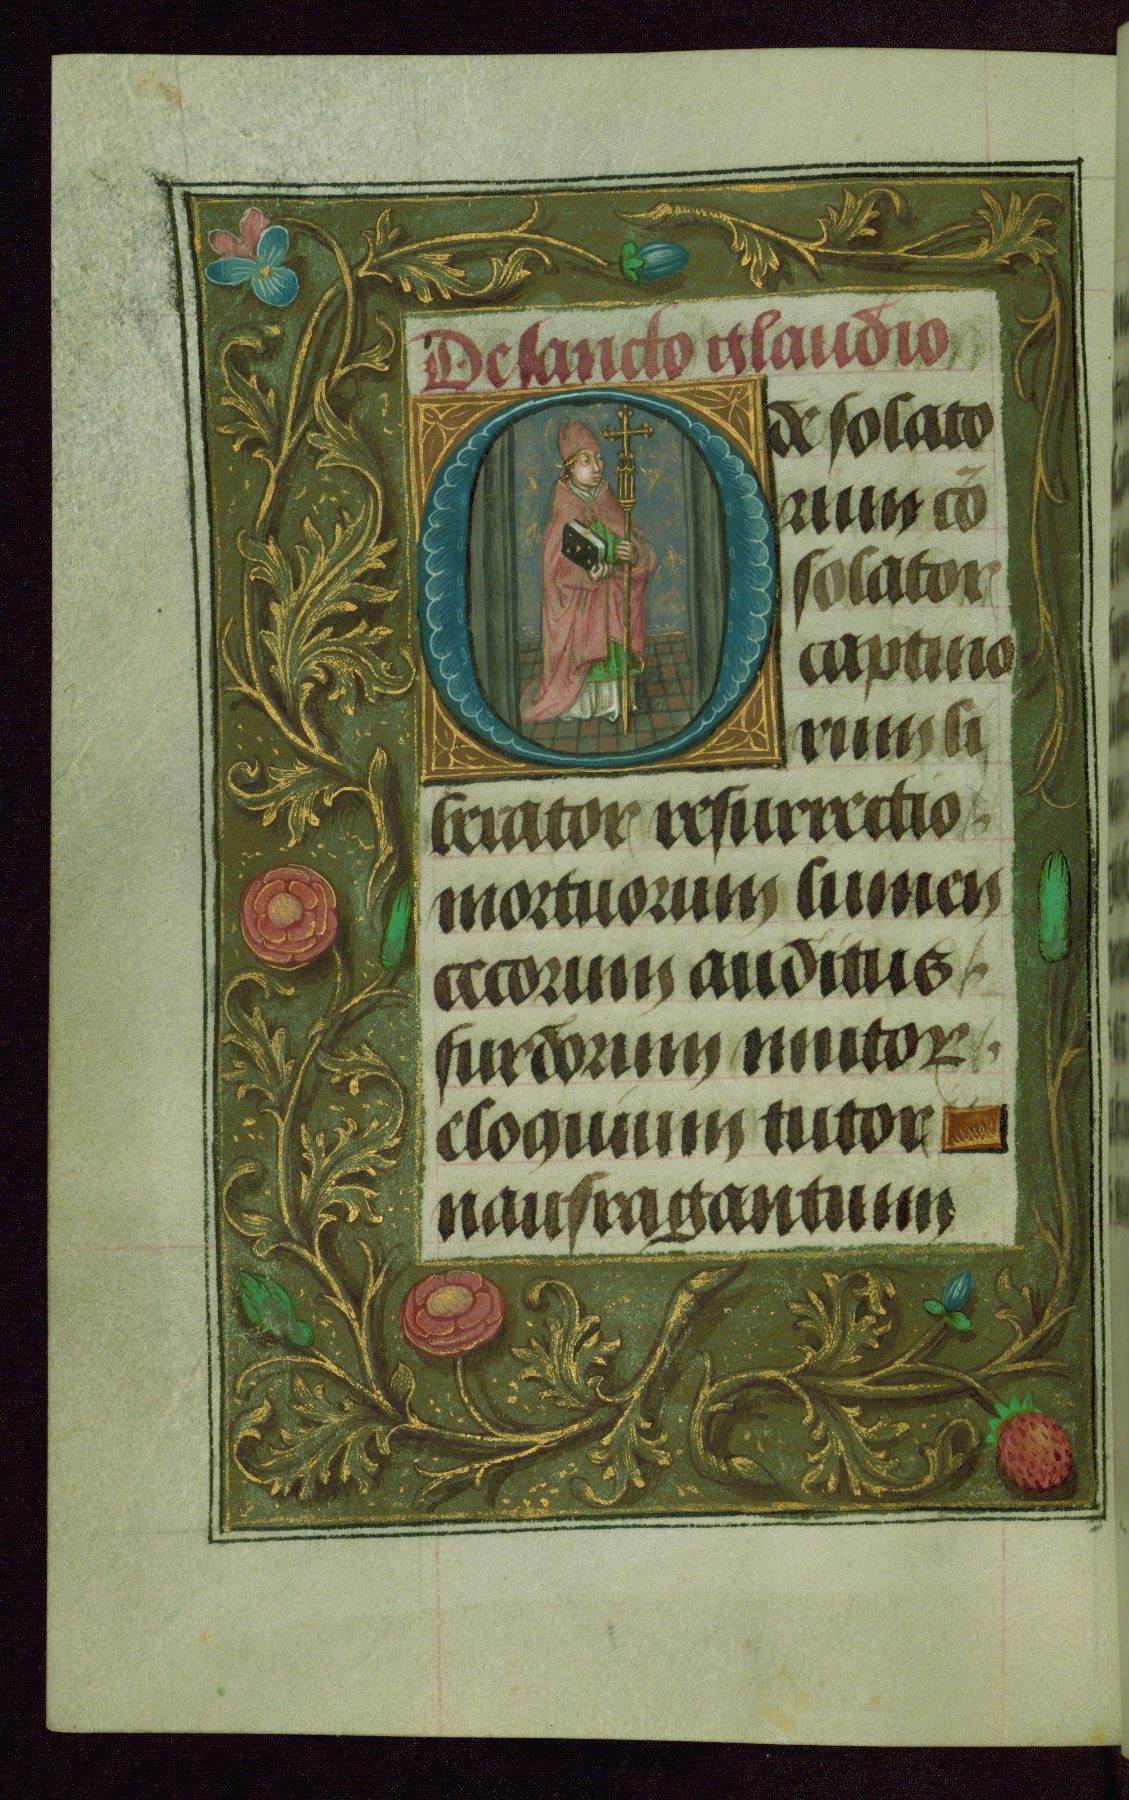 De sancto claudio
O de solato
rum cō
solator
captiuo
rum li
berator resurrectio
mortuorum lumen
cecorum auditus
surdorum mutoꝝ
eloquium tutor
naufragantium